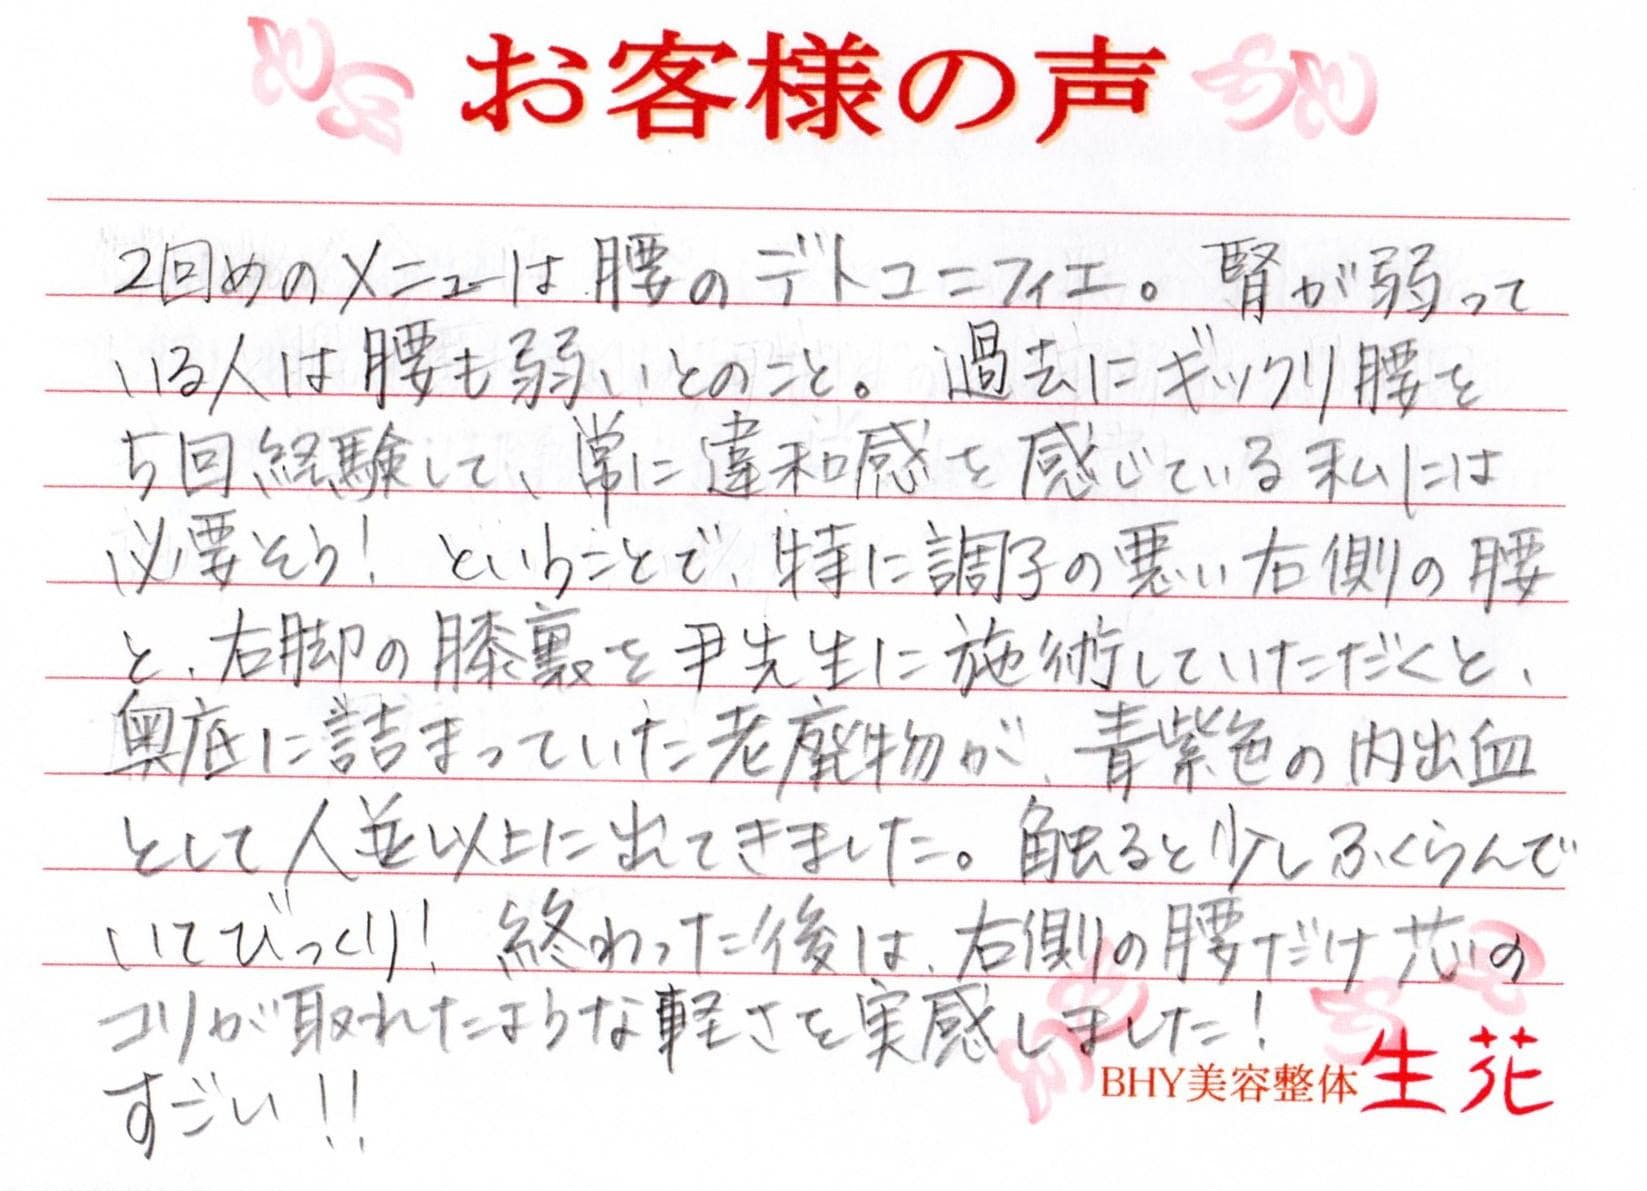 お客様の声
2回めのメニューは腰のデトコニフィエ。腎が弱って
いる人は腰も弱いとのこと。過去にギックリ腰を
5回経験して、常に違和感を感じている私には
必要そう！ということで、特に調子の悪い右側の腰
と、右脚の膝裏を尹先生に施術していただくと、
奥底に詰まっていた老廃物が、青紫色の内出血
として人並以上に出てきました。触ると少しふくらんで
いてびっくり！終わった後は、右側の腰だけ芯の
コリが取れたような軽さを実感しました！
すごい！！
BHY美容整体 生花